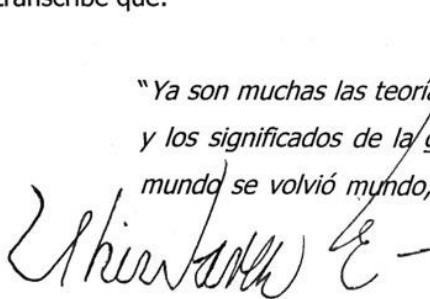 transcribe que:
"Ya son muchas las teoría
y los significados de la g
mundo se volvió mundo,